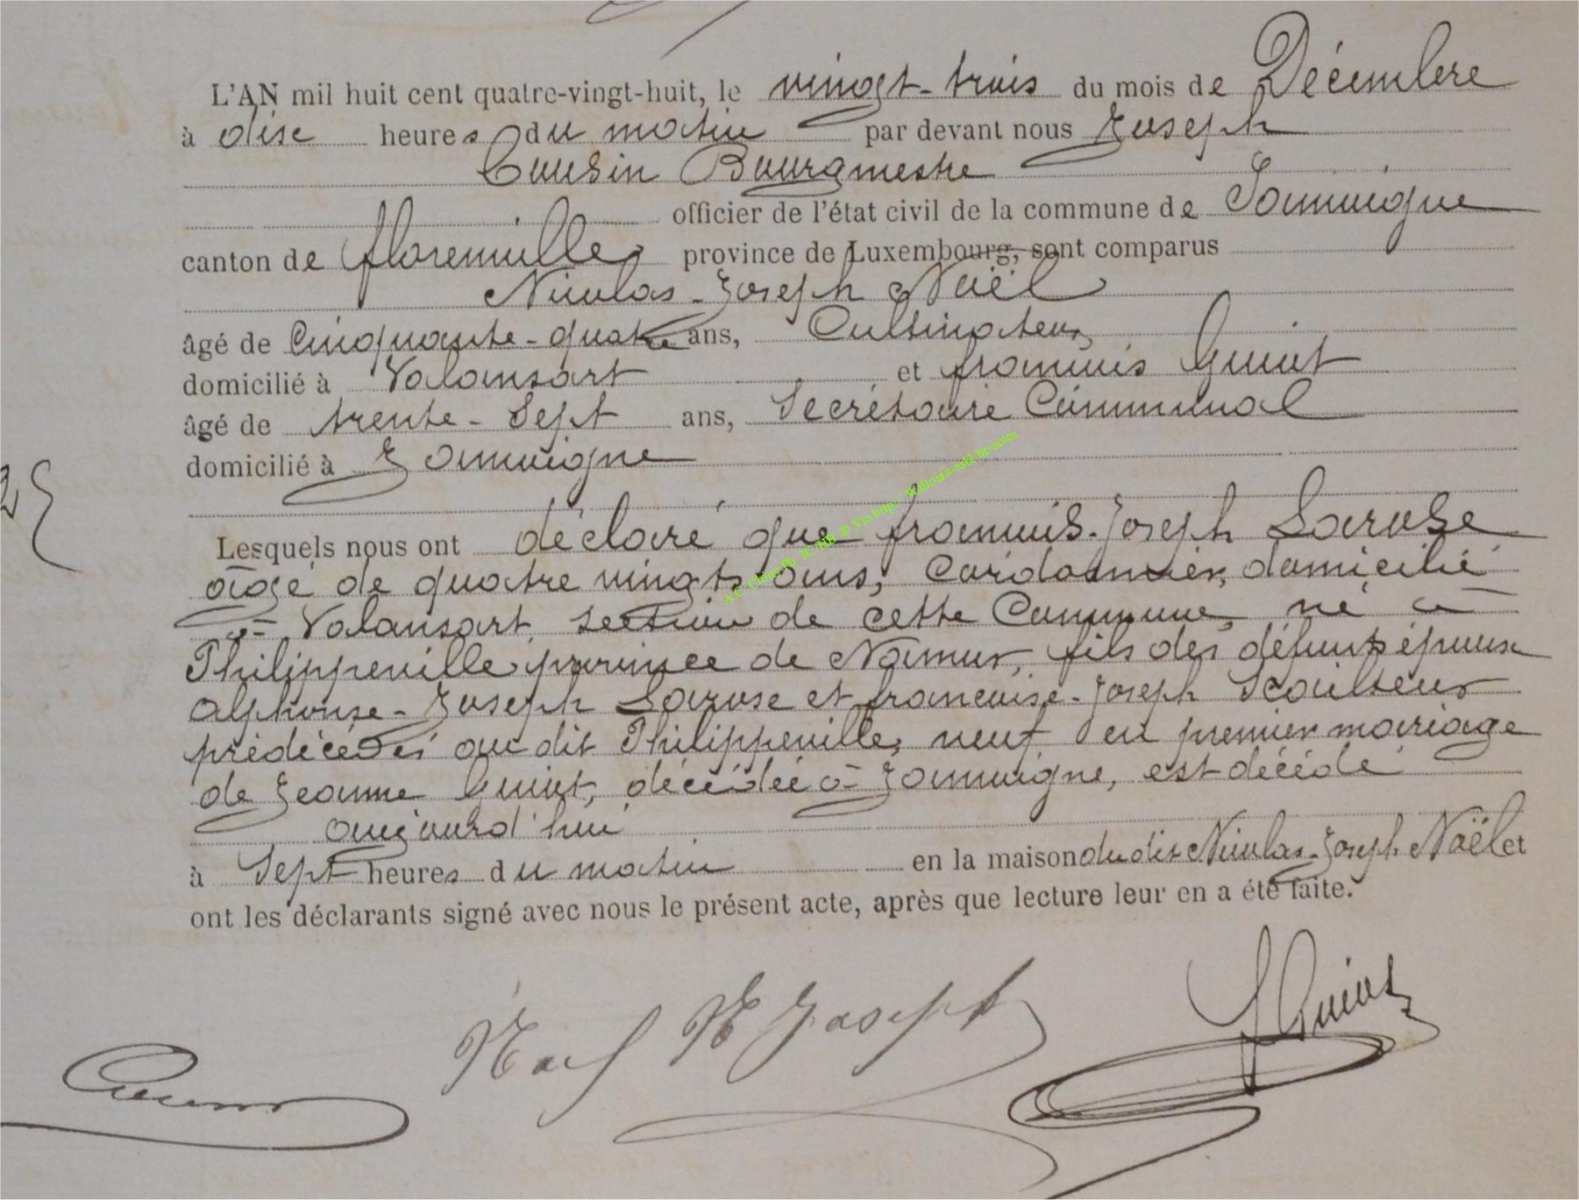 L'AN mil huit cent quatre-vingt-huit, le vingt-trois du mois de Décembre
à dix heures du matin par devant nous Joseph
Cousin Bourgmestre
officier de l'état civil de la commune de Jamoigne
canton de florenville, province de Luxembourg, sont comparus
Nicolas-Joseph Noël
âgé de Cinquante-quatre ans, Cultivateur,
domicilié à Valansart et françois Guiot
âgé de trente-Sept ans, Secrétaire Communal
domicilié à Jamoigne
Lesquels nous ont déclaré que françois-Joseph Larose
âgé de quatre vingts ans, Cordonnier, domicilié
à Valansart, section de cette Commune, né à
Philippeville province de Namur, fils des défunts époux
Alphonse-Joseph Larose et francoise-Joseph
prédécédés au dit Philippeville, veuf en premier mariage
de Jeanne Guiot, décédée à Jamoigne, est décédé
aujourd'hui
à Sept heures du matin en la maison du dit Nicolas-Joseph Noël et
ont les déclarants signé avec nous le présent acte, après que lecture leur en a été faite.
Noel N Joseph
F Guiot
Cousin